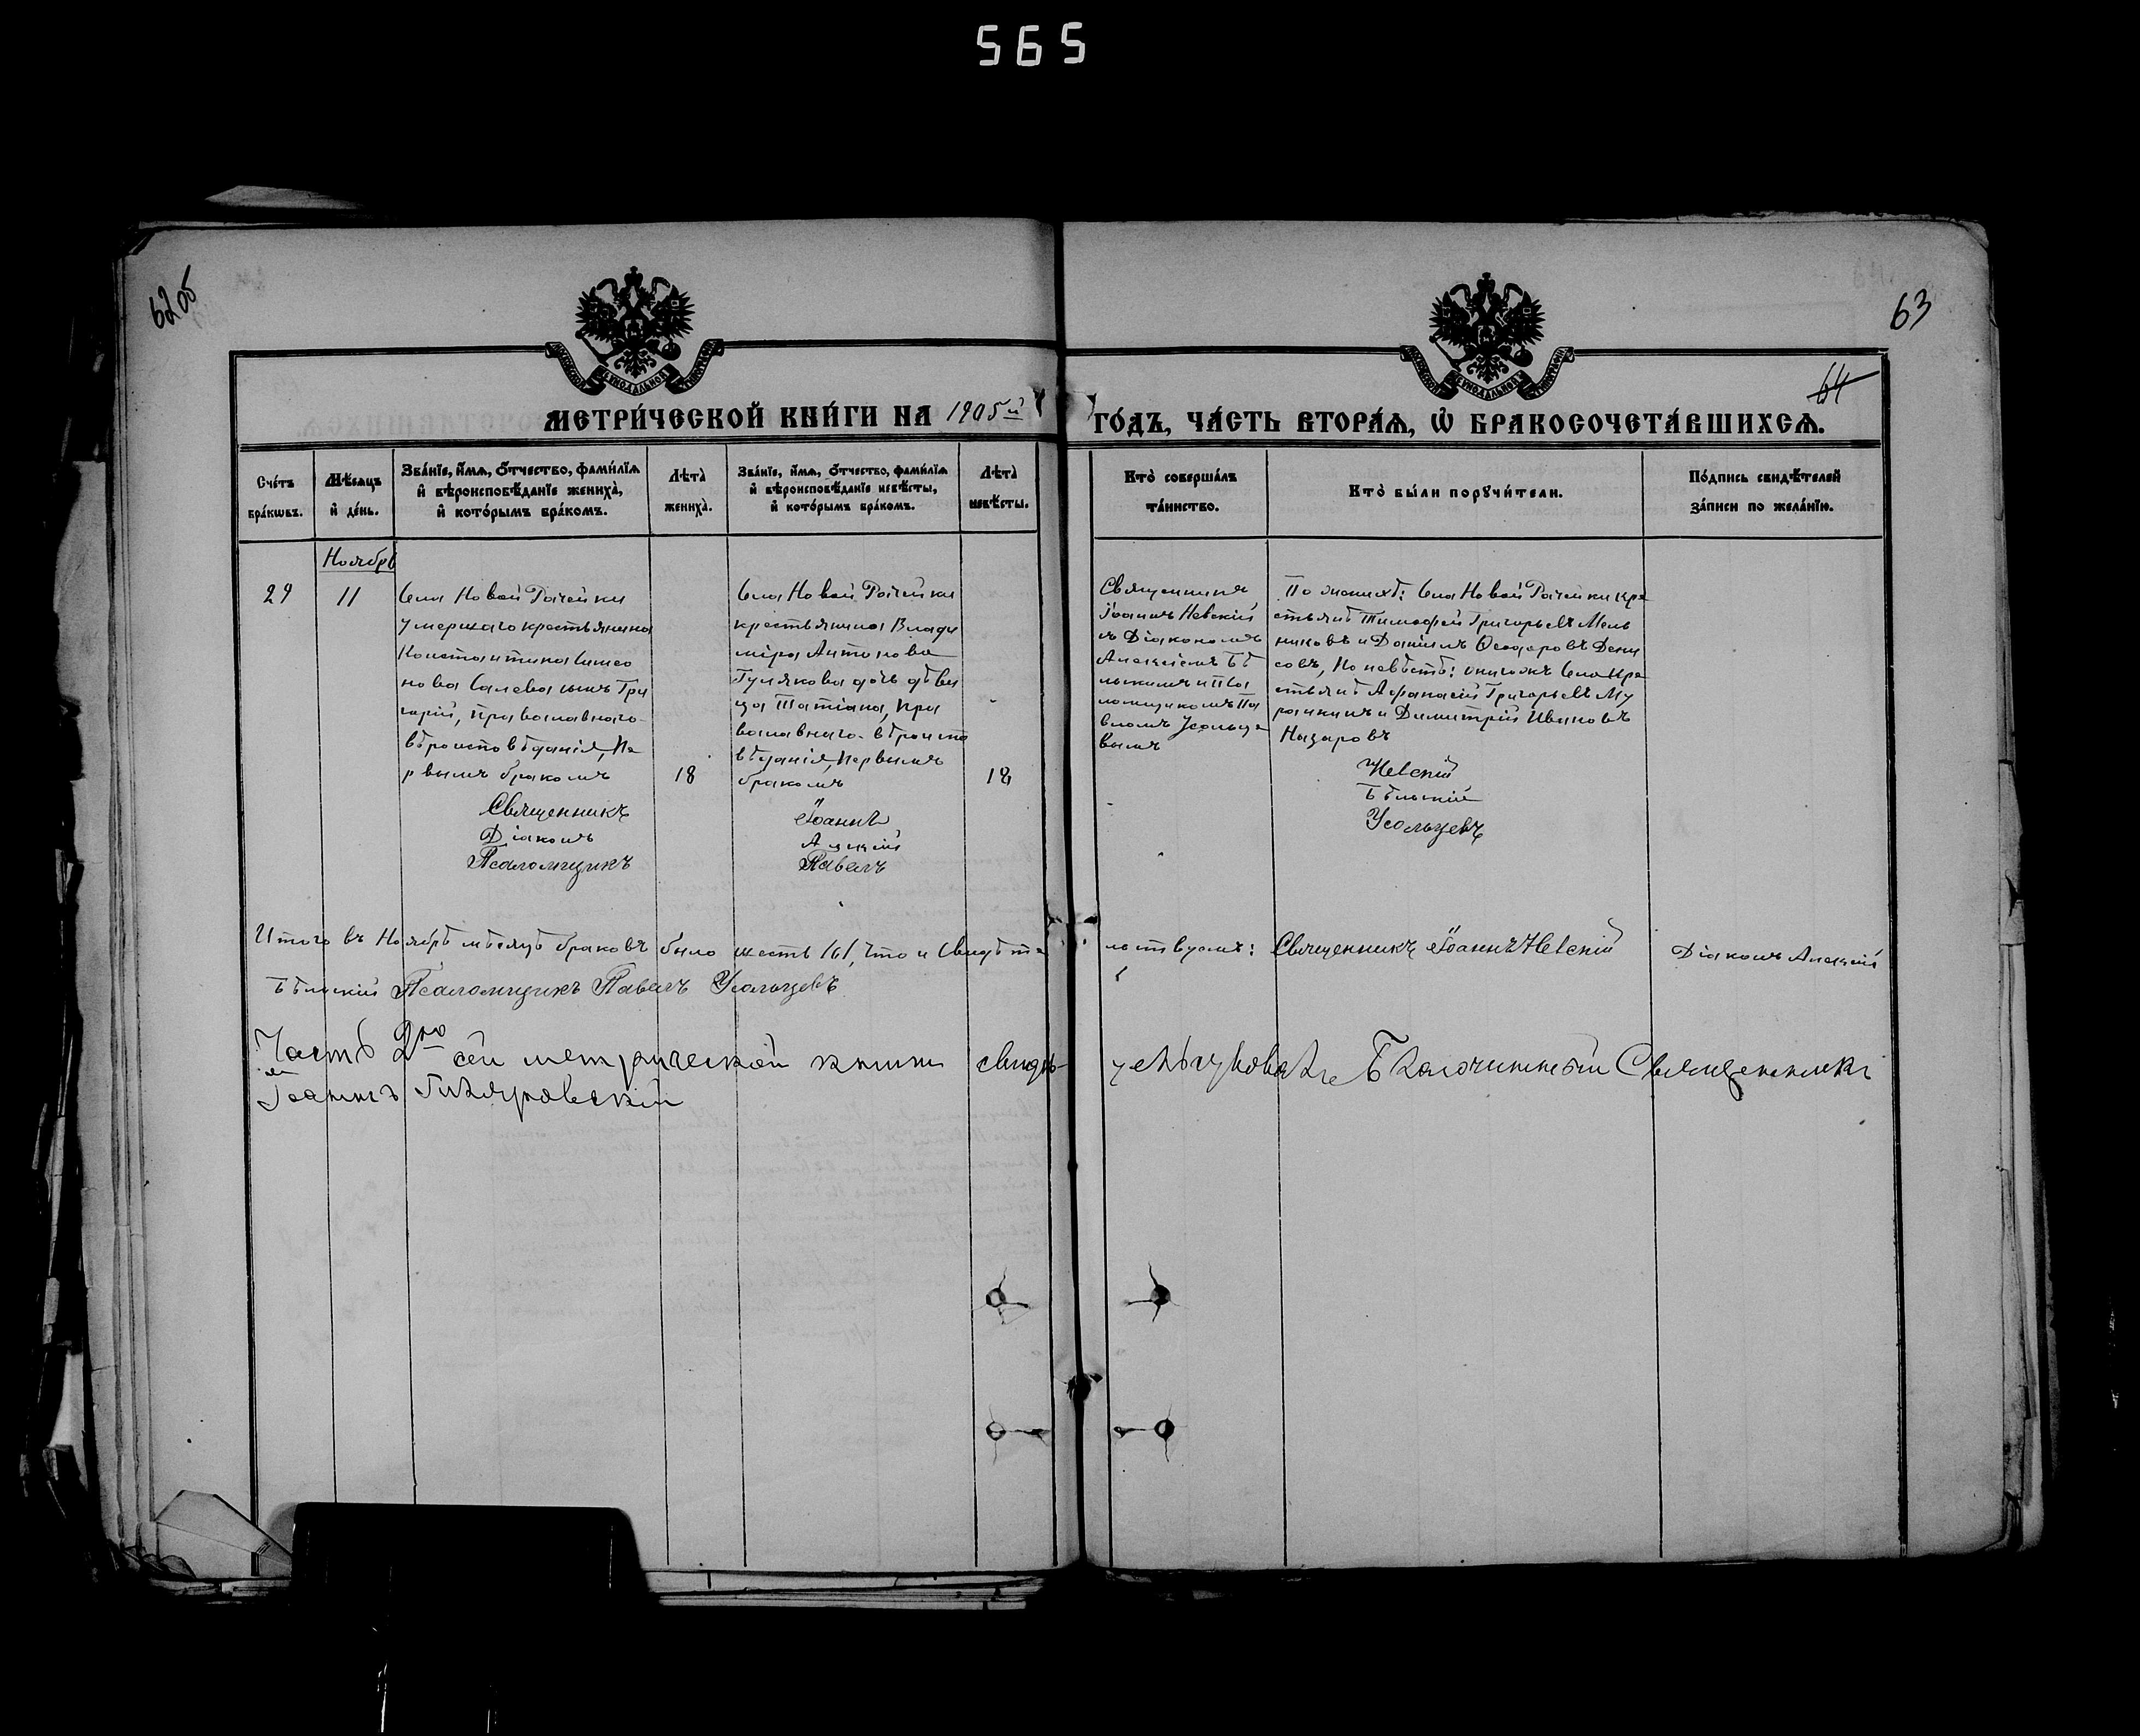 565
62 об
63
64
МЕТРИ́ЧЕСКОЙ КНИ́ГИ НА 1905 й
ГО́ДЪ, ЧА́СТЬ ВТОРА́Я, Ѡ БРАКОСОЧЕТА́ВШИХСЯ.
Сче́тъ бра́кѡвъ.
Мѣ́сяцъ и де́нь.
Зва́нїе, и́мя, о́тчество, фами́лїя и вѣроисповѣ́данїе жениха̀, и кото́рымъ бра́комъ.
Лѣта̀ жениха̀.
Зва́нїе, и́мя, о́тчество, фами́лїя и вѣроисповѣ́данїе невѣ́сты, и кото́рымъ бра́комъ.
Лѣта̀ невѣ́сты.
Кто̀ соверша́лъ та́инство.
Кто̀ бы́ли порꙋчи́тели.
По́дпись свидѣ́телей за́писи по жела́нїю.
Ноябрь
29
11
Села Новой Рачейки
умершаго крестьянина
Константина Симео
нова сынъ Гри
горій, православнаго
вѣроисповѣданія, пе
рвымъ бракомъ
18
Села Новой Рачейки
крестьянина Влади
міра Антонова
Гулякова дочь дѣви
ца Татіана, пра
вославнаго вѣроиспо
вѣданія, первымъ
бракомъ
18
Священникъ
Іоаннъ Невскій
съ Діакономъ
Алексіемъ Бѣ
льскимъ и Пса
ломщикомъ Па
вломъ Усольце
вымъ
По женихѣ: села Новой Рачейки кре
стьяне Тимофей Григорьевъ Мель
никовъ и Даніилъ Ѳеодоровъ Дени
совъ, по невѣстѣ: того жъ села кре
стьяне Аѳанасій Григорьевъ Му
рачкинъ и Димитрій Ивановъ
Назаровъ
Священникъ Іоаннъ Невскій
Діаконъ Алексій Бѣльскій
Псаломщикъ Павелъ Усольцевъ
Итого въ Ноябрѣ мѣсяцѣ браковъ было шесть /6/, что и свидѣте
льствуемъ: Священникъ Іоаннъ Невскій Діаконъ Алексій
Бѣльскій Псаломщикъ Павелъ Усольцевъ
Часть 2ю сей метрической книги свидѣ-
тельствовалъ Благочинный Священникъ
Іоаннъ Гиляровскій